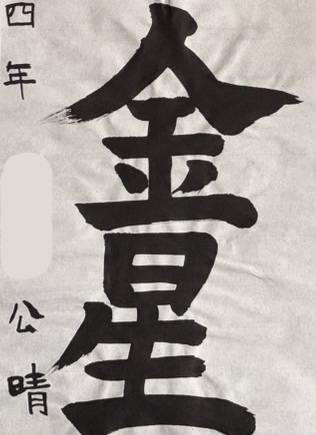 金星
四年
公晴